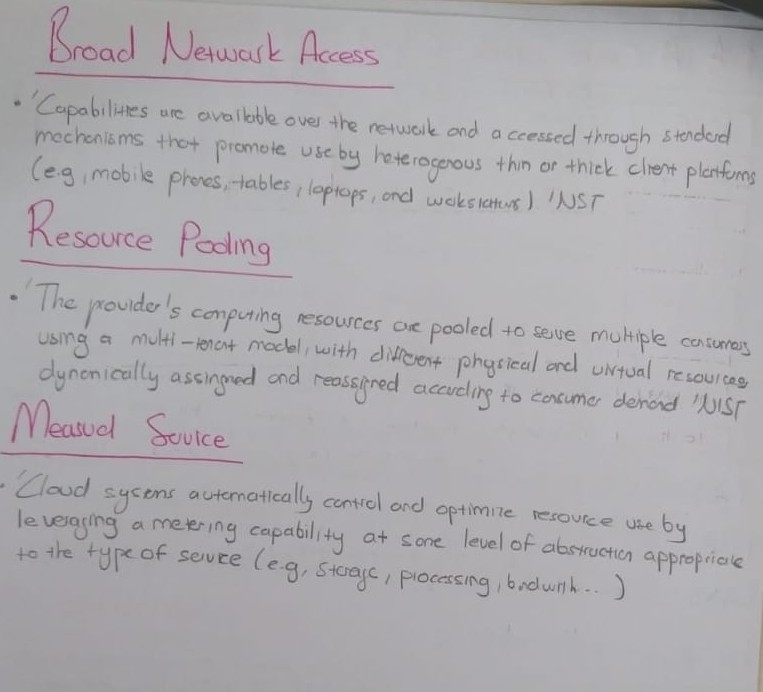 Broad Network Access
• 'Capabilities are available over the network and accessed through standard
mechanisms that promote use by heterogenous thin or thick client platforms
(e.g, mobile phones, tables, laptops, and workstations) 'NST
Resource Pooling
• 'The provider's computing resources are pooled to serve multiple consumers
using a multi-tenant model, with different physical and virtual resources
dynamically assingned and reassigned according to consumer demand 'NIST
Measud Service
• 'Cloud sysems automatically control and optimize resource use by
leveraging a metering capability at some level of abstraction appropriate
to the type of service (e.g, storage, processing, bndwith... )